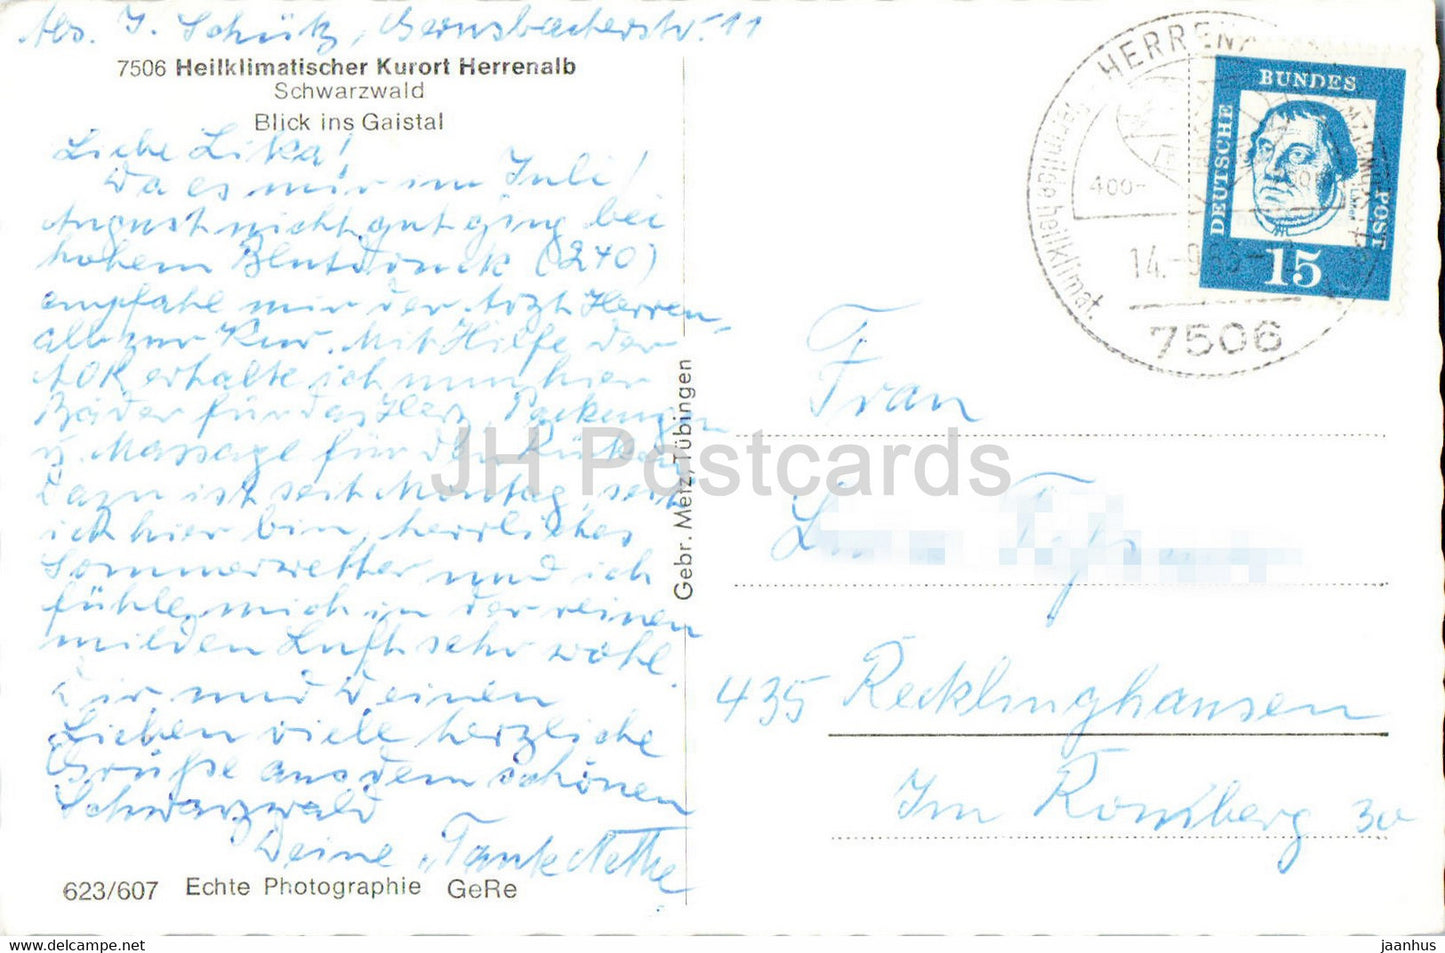 Abs. J. Schütz, Gernsbacherstr. 11
7506 Heilklimatischer Kurort Herrenalb
Schwarzwald
Blick ins Gaistal
Liebe Lika!
Da es mir im Juli/
August nicht gut ging bei
hohem Blutdruck (240)
empfahl mir der Arzt Herren-
alb zur Kur. Mit Hilfe der
AOK erhalte ich nun hier
Bäder für das Herz, Packungen
u. Massage für den Rücken
Dazu ist seit Montag, seit
ich hier bin, herrliches
Sommerwetter und ich
fühle mich in der reinen
milden Luft sehr wohl.
Dir und Deinen
Lieben viele herzliche
Grüße aus dem schönen
Schwarzwald
Deine Tante Nethe
623/607 Echte Photographie GeRe
Gebr. Metz, Tübingen
HERREN
heilklimat.
400-
14.-9.
7506
DEUTSCHE BUNDESPOST
Luther
15
Frau
435 Recklinghausen
Im Romberg 30
JH Postcards
www.delcampe.net
jaanhus